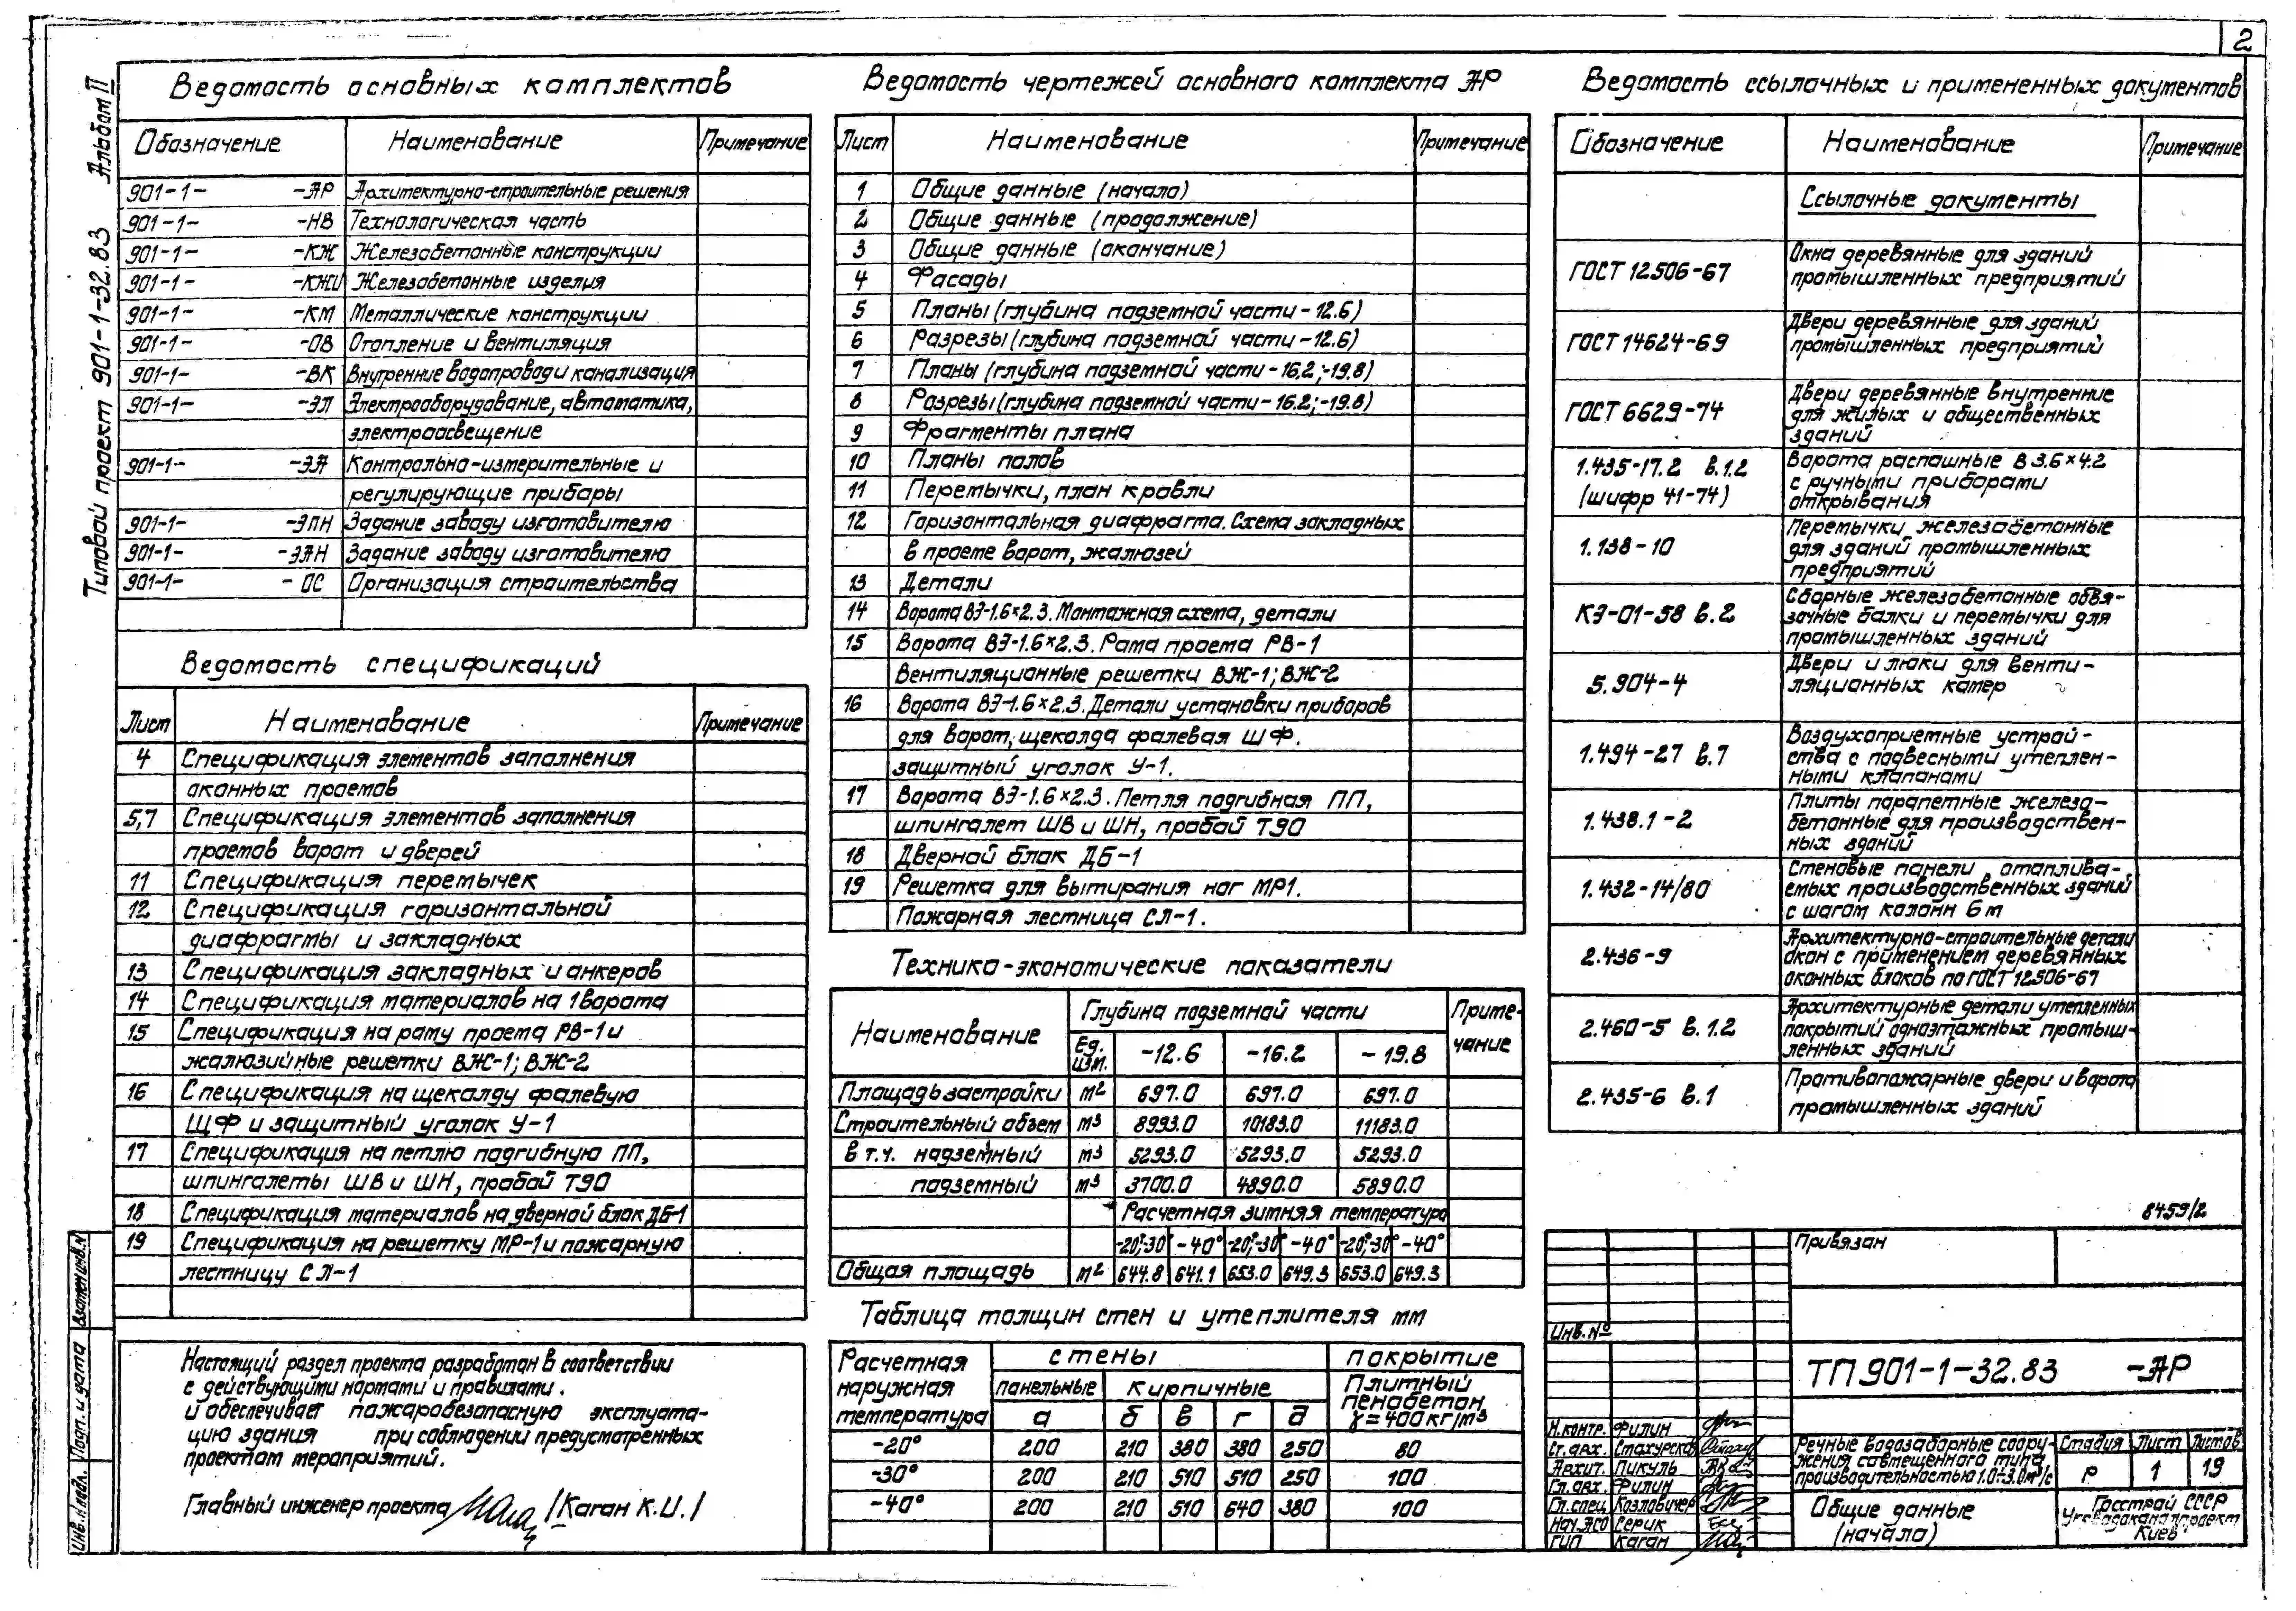 2
Типовой проект 901-1-32.83 Альбом II
Ведомость основных комплектов
Обозначение Наименование Примечание
901-1- -АР Архитектурно-строительные решения
901-1- -НВ Технологическая часть
901-1- -КЖ Железобетонные конструкции
901-1- -КЖИ Железобетонные изделия
901-1- -КМ Металлические конструкции
901-1- -ОВ Отопление и вентиляция
901-1- -ВК Внутренние водопровод и канализация
901-1- -ЭЛ Электрооборудование, автоматика,
электроосвещение
901-1- -ЭА Контрольно-измерительные и
регулирующие приборы
901-1- -ЭЛН Задание заводу изготовителю
901-1- -ЭАН Задание заводу изготовителю
901-1- - ОС Организация строительства
Ведомость спецификаций
Лист Наименование Примечание
4 Спецификация элементов заполнения
оконных проемов
5,7 Спецификация элементов заполнения
проемов ворот и дверей
11 Спецификация перемычек
12 Спецификация горизонтальной
диафрагмы и закладных
13 Спецификация закладных и анкеров
14 Спецификация материалов на 1 ворота
15 Спецификация на раму проема РВ-1 и
жалюзийные решетки ВЖ-1; ВЖ-2
16 Спецификация на щеколду фалевую
ЩФ и защитный уголок У-1
17 Спецификация на петлю подгибную ПП,
шпингалеты ШВ и ШН, пробой Т90
18 Спецификация материалов на дверной блок ДБ-1
19 Спецификация на решетку МР-1 и пожарную
лестницу СЛ-1
Настоящий раздел проекта разработан в соответствии
с действующими нормами и правилами.
и обеспечивает пожаробезопасную эксплуата-
цию здания при соблюдении предусмотренных
проектом мероприятий.
Главный инженер проекта /Каган К.И./
Ведомость чертежей основного комплекта АР
Лист Наименование Примечание
1 Общие данные (начало)
2 Общие данные (продолжение)
3 Общие данные (окончание)
4 Фасады
5 Планы (глубина подземной части - 12.6)
6 Разрезы (глубина подземной части - 12.6)
7 Планы (глубина подземной части - 16.2; -19.8)
8 Разрезы (глубина подземной части - 16.2; -19.8)
9 Фрагменты плана
10 Планы полов
11 Перемычки, план кровли
12 Горизонтальная диафрагма. Схема закладных
в проеме ворот, жалюзей
13 Детали
14 Ворота ВЭ-1.6×2.3. Монтажная схема, детали
15 Ворота ВЭ-1.6×2.3. Рама проема РВ-1
Вентиляционные решетки ВЖ-1; ВЖ-2
16 Ворота ВЭ-1.6×2.3. Детали установки приборов
для ворот, щеколда фалевая ШФ.
защитный уголок У-1.
17 Ворота ВЭ-1.6×2.3. Петля подгибная ПП,
шпингалет ШВ и ШН, пробой Т90
18 Дверной блок ДБ-1
19 Решетка для вытирания ног МР1.
Пожарная лестница СЛ-1.
Технико-экономические показатели
Наименование Глубина подземной части Приме-
чание
Ед. изм. -12.6 -16.2 -19.8
Площадь застройки м² 697.0 697.0 697.0
Строительный объем м³ 8993.0 10183.0 11183.0
в т.ч. надземный м³ 5293.0 5293.0 5293.0
подземный м³ 3700.0 4890.0 5890.0
Расчетная зимняя температура
-20°;-30° -40° -20°;-30° -40° -20°;-30° -40°
Общая площадь м² 644.8 641.1 653.0 649.3 653.0 649.3
Таблица толщин стен и утеплителя мм
Расчетная наружная температура стены покрытие
панельные кирпичные Плитный пенобетон γ=400кг/м³
а б в г д
-20° 200 210 380 380 250 80
-30° 200 210 510 510 250 100
-40° 200 210 510 640 380 100
Ведомость ссылочных и примененных документов
Обозначение Наименование Примечание
Ссылочные документы
ГОСТ 12506-67 Окна деревянные для зданий
промышленных предприятий
ГОСТ 14624-69 Двери деревянные для зданий
промышленных предприятий
ГОСТ 6629-74 Двери деревянные внутренние
для жилых и общественных
зданий
1.435-17.2 в.1.2 Ворота распашные В 3.6×4.2
(шифр 41-74) с ручными приборами
открывания
1.138-10 Перемычки железобетонные
для зданий промышленных
предприятий
КЭ-01-58 в.2 Сборные железобетонные обвя-
зочные балки и перемычки для
промышленных зданий
5.904-4 Двери и люки для венти-
ляционных камер
1.494-27 в.7 Воздухоприемные устрой-
ства с подвесными утеплен-
ными клапанами
1.438.1-2 Плиты парапетные железо-
бетонные для производствен-
ных зданий
1.432-14/80 Стеновые панели отаплива-
емых производственных зданий
с шагом колонн 6м
2.436-9 Архитектурно-строительные детали
окон с применением деревянных
оконных блоков по ГОСТ 12506-67
2.460-5 в.1.2 Архитектурные детали утепленных
покрытий одноэтажных промыш-
ленных зданий
2.435-6 в.1 Противопожарные двери и ворота
промышленных зданий
8459/2
Привязан
Инв.№
ТП 901-1-32.83 -АР
Н.контр. Филин
Ст.арх. Стахурская
Архит. Пикуль
Гл.арх. Филин
Гл.спец Козловичер
Нач.АСО Серик
ГИП Каган
Речные водозаборные соору-
жения совмещенного типа
производительностью 1.0÷3.0м³/с
Стадия Лист Листов
Р 1 19
Общие данные
(начало)
Госстрой СССР
Укрводоканалпроект
Киев
Взамен инв.№
Подп. и дата
Инв.№ подл.